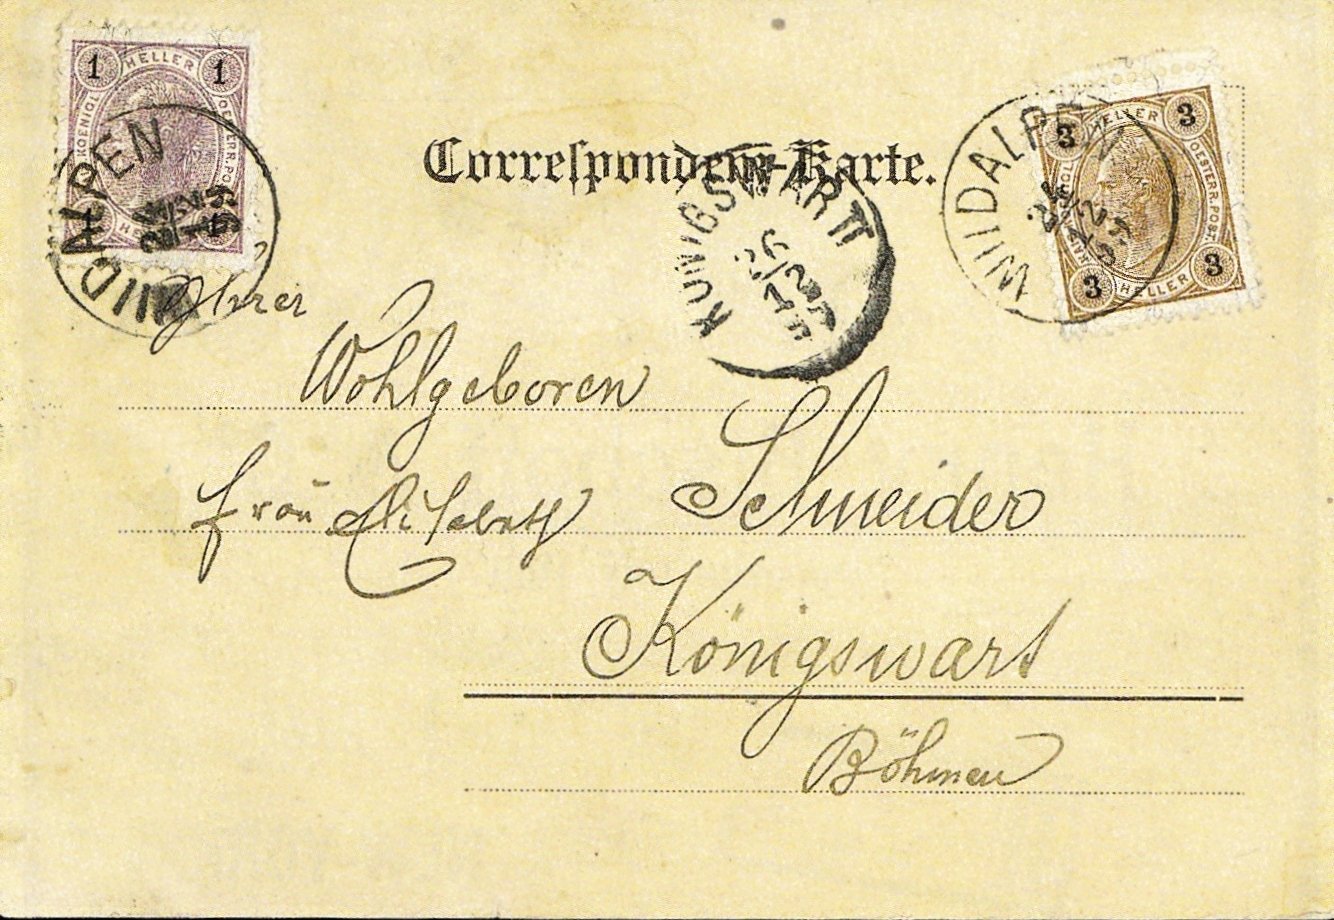 1 HELLER 1
KOENIGL
OESTERR.PO
WILDALPEN
24/12
99
Correspondenz-Karte.
KÖNIGSWART
26/12
WILDALPEN
24/12
99
3 HELLER 3
OESTERR.POST
3 HELLER 3
Ihrer
Wohlgeboren
Frau Elisabeth Schneider
Königswart
Böhmen